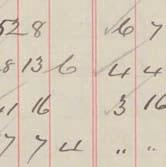 52 8 6 7
8 13 6 4 4
41 16 3 16
7 7 4 " "